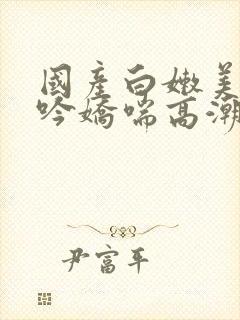 國產白嫩美
吟嬌喘高潮
尹富平